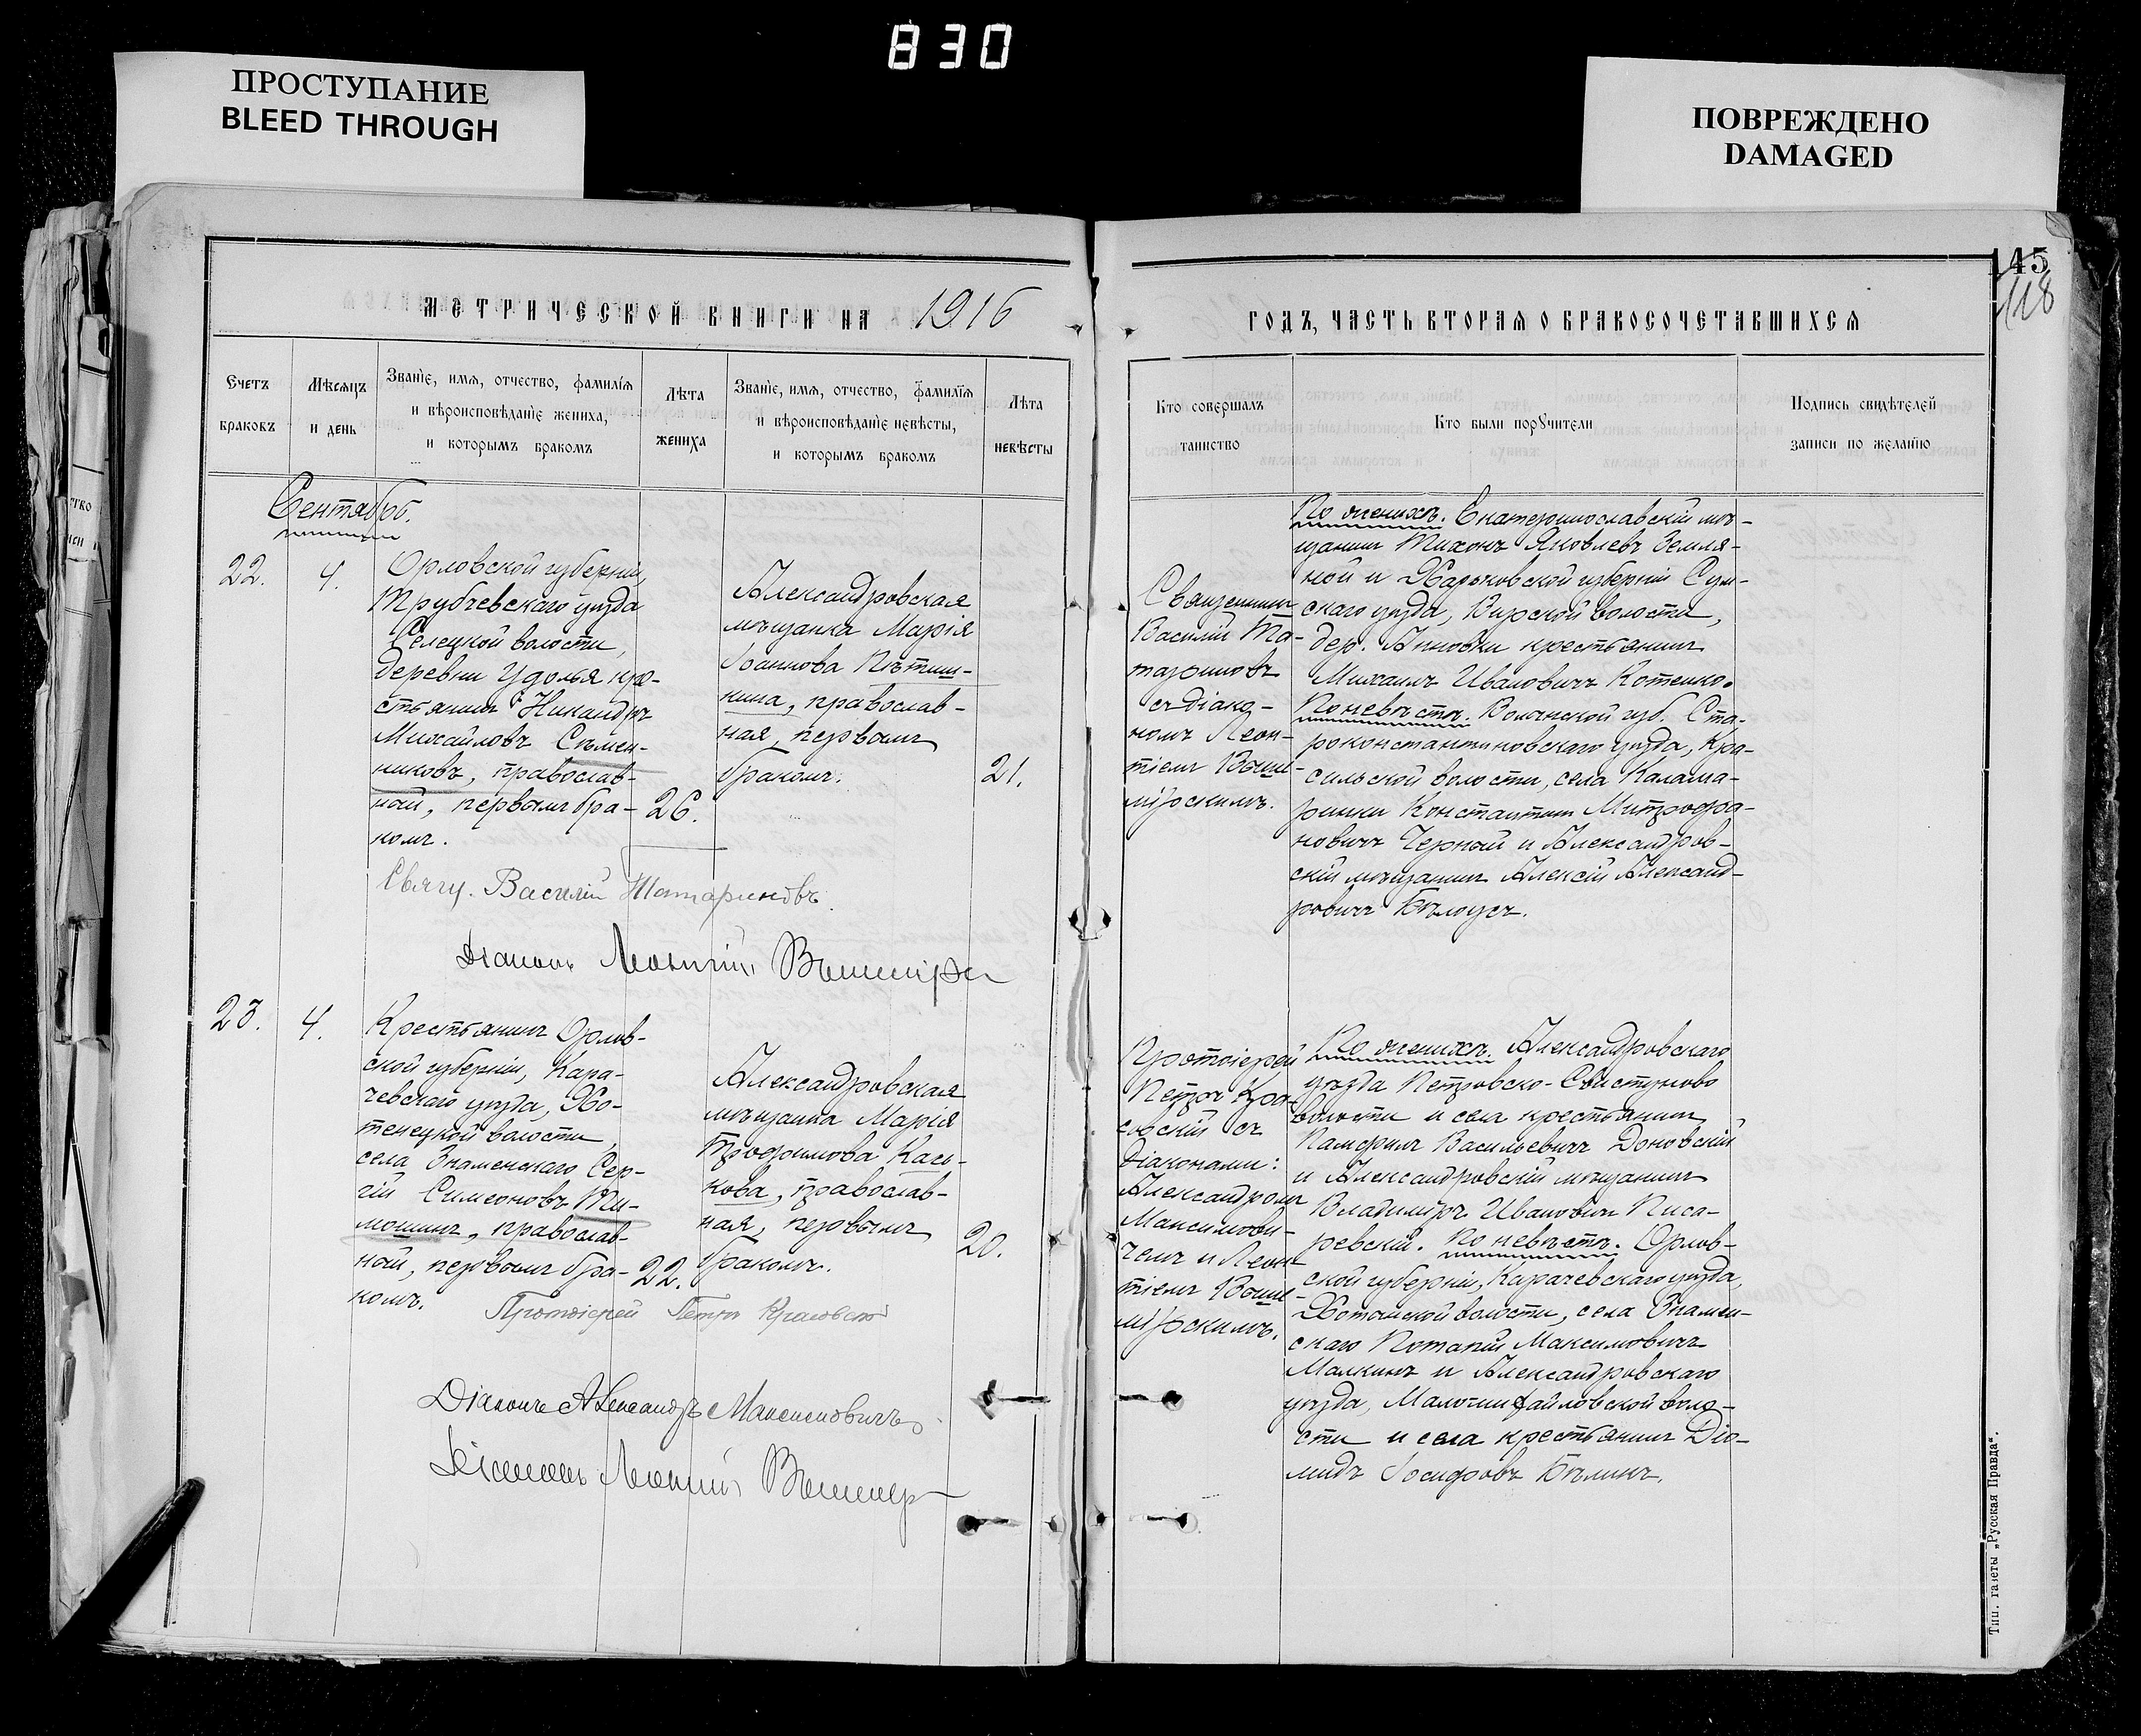 830
ПРОСТУПАНИЕ
BLEED THROUGH
ПОВРЕЖДЕНО
DAMAGED
145
118
МЕТРИЧЕСКОЙ КНИГИ НА 1916
ГОДЪ, ЧАСТЬ ВТОРАЯ О БРАКОСОЧЕТАВШИХСЯ
Счетъ
браковъ
Мѣсяцъ
и день
Званіе, имя, отчество, фамилія
и вѣроисповѣданіе жениха,
и которымъ бракомъ
Лѣта
жениха
Званіе, имя, отчество, фамилія
и вѣроисповѣданіе невѣсты,
и которымъ бракомъ
Лѣта
невѣсты
Кто совершалъ
таинство
Кто были поручители
Подпись свидѣтелей
записи по желанію
Сентябрь.
22.
4.
Орловской губерніи,
Трубчевскаго уѣзда
Селецкой волости,
деревни Удолья кре-
стьянинъ Никандръ
Михайловъ Сѣмен-
никовъ, православ-
ный, первымъ бра-
комъ.
26.
Александровская
мѣщанка Марія
Іоаннова Пѣтиш-
кина, православ-
ная, первымъ
бракомъ.
21.
Священникъ
Василій Та-
тариновъ
съ діако-
номъ Леон-
тіемъ Выши-
мірскимъ.
По женихѣ. Екатеринославскій мѣ-
щанинъ Тихонъ Яковлевъ Земля-
ной и Харьковской губерніи Сум-
скаго уѣзда, Вирской волости,
дер. Анновки крестьянинъ
Михаилъ Ивановичъ Котенко.
По невѣстѣ. Волынской губ. Ста-
роконстантиновскаго уѣзда, Кра-
сильской волости, села Калама-
ринки Константинъ Митрофа-
новичъ Черный и Александров-
скій мѣщанинъ Алексій Александ-
ровичъ Бѣлоусъ.
Свящ. Василій Татариновъ.
Діаконъ Леонтій
23.
4.
Крестьянинъ Орлов-
ской губерніи, Кара-
чевскаго уѣзда, Хо-
тенецкой волости,
села Знаменскаго Сер-
гій Симеоновъ Ти-
мошинъ, православ-
ный, первымъ бра-
комъ.
22.
Александровская
мѣщанка Марія
Трофимова Кась-
кова, православ-
ная, первымъ
бракомъ.
20.
Протоіерей
Петръ Кра-
совскій съ
діаконами:
Александромъ
Максимови-
чемъ и Леон-
тіемъ Выши-
мірскимъ.
По женихѣ. Александровскаго
уѣзда Петровско-Свистуново
волости и села крестьянинъ
Памфилъ Васильевичъ Доновскій
и Александровскій мѣщанинъ
Владиміръ Ивановичъ Писа-
ревскій. По невѣстѣ. Орлов-
ской губерніи, Карачевскаго уѣзда,
волости, села Знамен-
скаго Потапій Максимовичъ
Малкинъ и Александровскаго
уѣзда, Маломихайловской воло-
сти и села крестьянинъ Діо-
мидъ Іосифовъ Бѣликъ.
Протоіерей Петръ Красовскій
Діаконъ Александръ Максимовичъ
Діаконъ Леонтій
Тип. газеты „Русская Правда“.